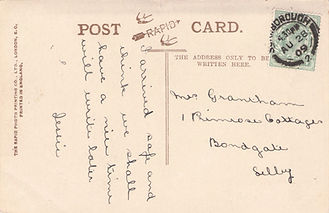 POST CARD.
RAPID
THE ADDRESS ONLY TO BE
WRITTEN HERE.
BOROUGH
5.30PM
AU 28
09
THE RAPID PHOTO PRINTING CO., LTD., LONDON, E.C.
PRINTED IN ENGLAND.
Arrived safe and
think we shall
have a nice time
will write later
Jessie
Mrs Grantham
1 Primrose Cottages
Bondgate
Selby